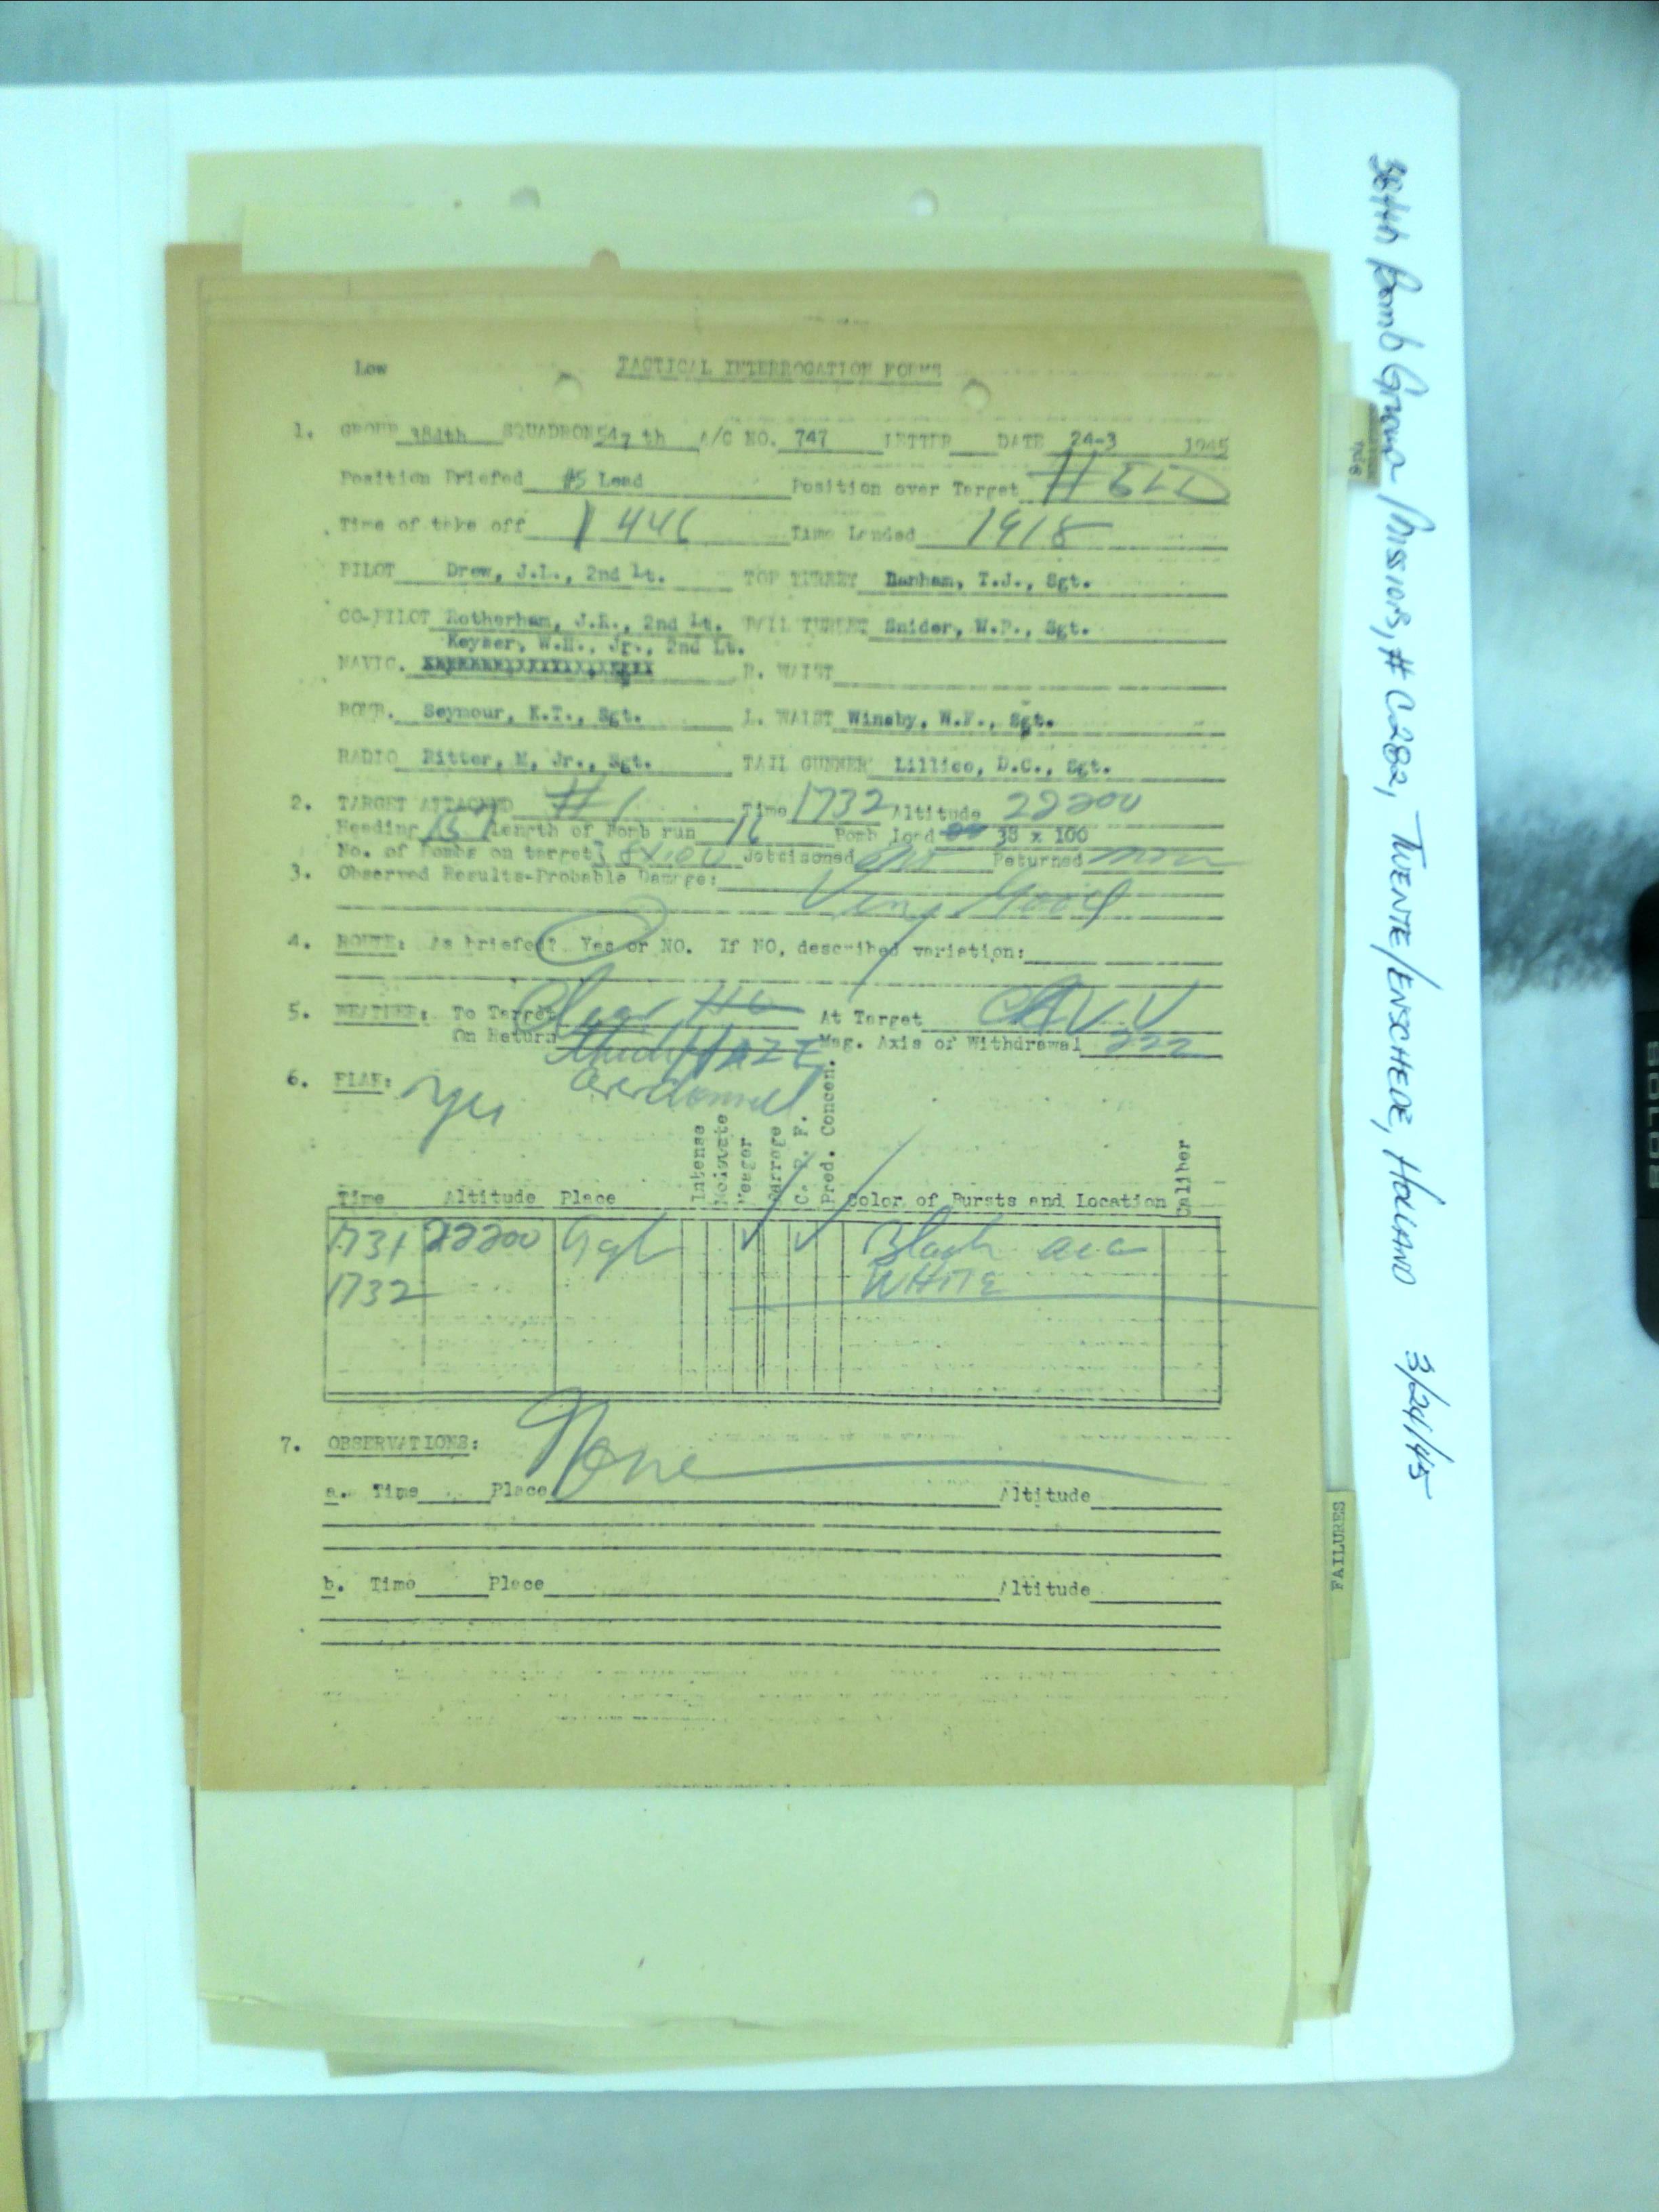 Low
TACTICAL INTERROGATION FORMS
1. GROUP 384th SQUADRON 547 th A/C NO. 747 LETTER DATE 24-3 1945
Position Briefed #5 Lead Position over Target #5 LD
Time of take off 1446 Time Landed 1918
PILOT Drew, J.L., 2nd Lt. TOP TURRET Danham, T.J., Sgt.
CO-PILOT Rotherham, J.R., 2nd Lt. BALL TURRET Snider, W.P., Sgt.
Keyser, W.H., Jr., 2nd Lt.
NAVIG. R. WAIST
BOMB. Seymour, K.T., Sgt. L. WAIST Winsby, W.F., Sgt.
RADIO Ritter, M, Jr., Sgt. TAIL GUNNER Lillico, D.C., Sgt.
2. TARGET ATTACKED #1 Time 1732 Altitude 22200
Heading Length of Bomb run Bomb Load 38 x 100
No. of Bombs on target 38x100 Jettisoned Returned
3. Observed Results-Probable Damage:
Very Good
4. ROUTE: As briefed? Yes or NO. If NO, described variation:
5. WEATHER: To Target Clear At Target CAVU
On Return HAZE Mag. Axis of Withdrawal 222
6. FLAK: Yes
Intense
Moderate
Meager
Barrage
C. P. F.
Pred. Concen.
Caliber
Time Altitude Place Color of Bursts and Location
1731 22200 Tgt Black
1732 WHITE
7. OBSERVATIONS: None
a. Time Place Altitude
b. Time Place Altitude
FAILURES
384th Bomb Group Mission, # C282, TWENTE/ENSCHEDE, HOLLAND 3/24/45